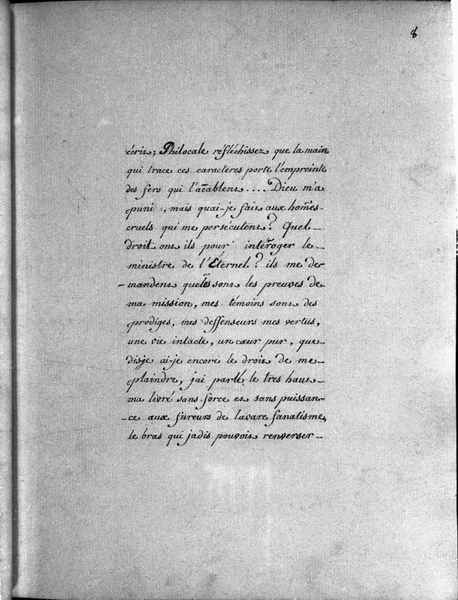 8
écris; Philocale refléchissez que la main
qui trace ces caracteres porte l'empreinte
des fers qui l'acablent.... Dieu m'a
puni, mais quai-je fait aux homes
cruels qui me persecutent? Quel
droit ont ils pour interoger le
ministre de l'Eternel? ils me de-
mandent quelles sont les preuves de
ma mission, mes témoins sont des
prodiges, mes deffenseurs mes vertus,
une vie intacte, un cœur pur, que
disje ai-je encore le droit de me
plaindre, jai parlé le tres haut
ma livré sans force et sans puissan-
-ce aux fureurs de lavare fanatisme,
le bras qui jadis pouvoit renverser